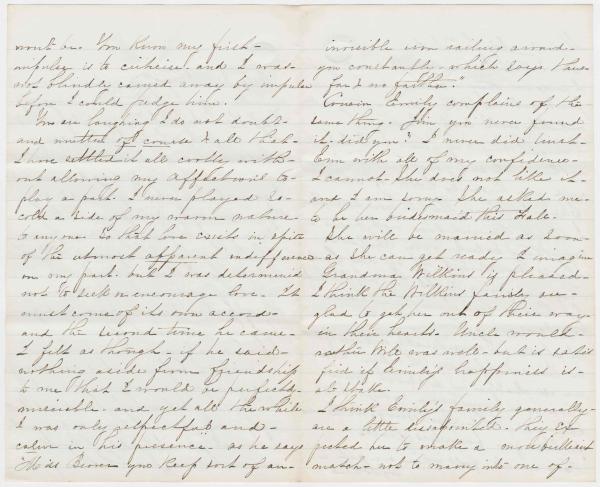 wont be. You know my first
impulse is to criticise and I was
not blindly carried away by impulse
before I could judge him.
You are laughing I do not doubt
and mutter of course & all that
I have settled it all coolly with
out allowing my affections to
play a part. I never played so
cold a side of my warm nature
to anyone so that love exists in spite
of the utmost apparent indifference
on my part. but I was determined
not to seek or encourage love. It
must come of its own accord
and the second time he came
I felt as though if he said
nothing aside from friendship
to me that I would be perfectly
miserable. and yet all the while
I was only respectful and
calm in his presence. as he says
"Miss you keep sort of an
invisible iron railing around
you constantly. which says thus
far & no farther."
Cousin Emily complains of the
same thing. you never found
it did you? I never did trust
Em with all of my confidence
I cannot. She does not like it
and I am sorry. She asked me
to be her bridesmaid this Fall.
She will be married as soon
as she can get ready I imagine
Grandma Wilkins is pleased
I think the Wilkins family are
glad to get her out of their way
in their hearts. Uncle would
rather was well but is satis
fied if Emily's happiness is
at stake.
I think Emily's family generally
are a little disappointed. They ex
pected her to make a more brilliant
match not to marry into one of